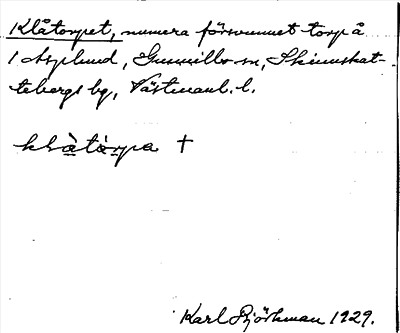 Klåtorpet, numera försvunnet torp å
1 Asplund, Gunnilbo sn, Skinnskat-
tebergs bg, Västmanl. l.
klå̀tòrpa †
Karl Björkman 1929.